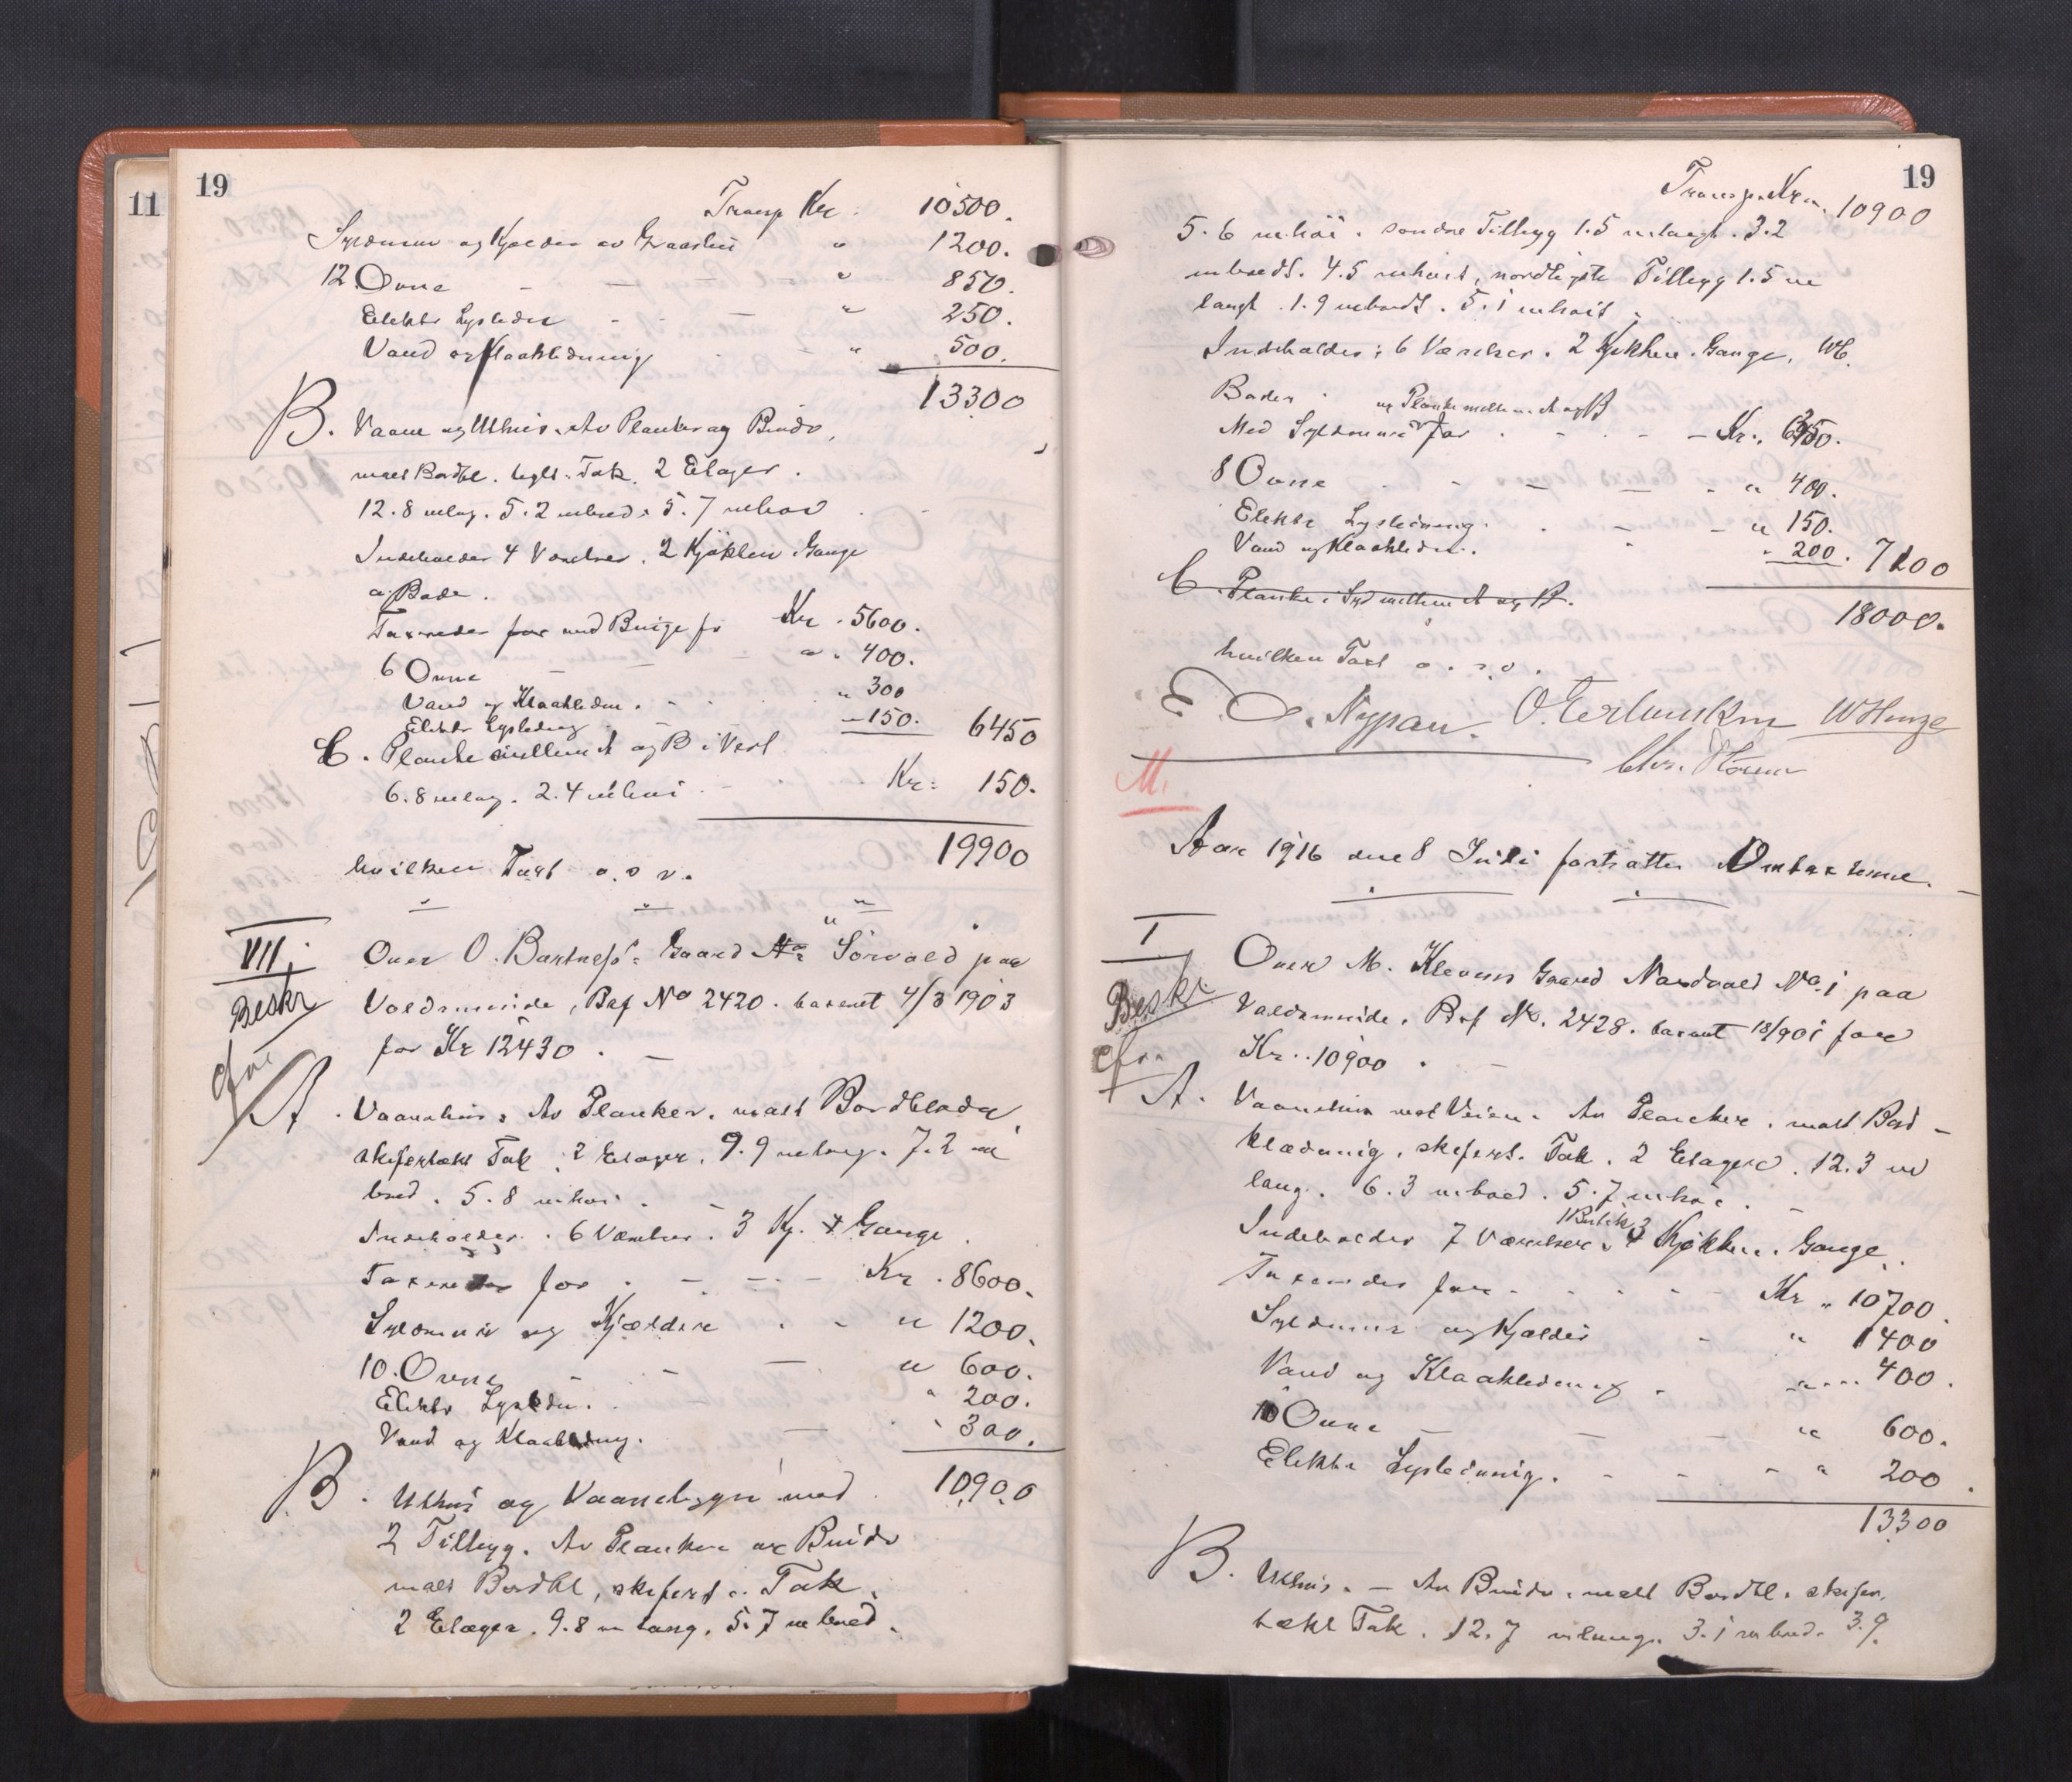 19
11
Transp Kr. 10500.
Syldmur og Kjelder av Graasten " 1200.
12 Ovne - - " 850.
Elektr Lysleden - - - " 250.
Vand og Kloakledning " 500.
13300
B. Vaane og Uthus. Av Planker og Bindv,
malt Bordkl. teglt. Tak. 2 Etager.
12.8 m lag. 5.2 m bred. 5.7 m høi
Indeholder 4 Værelser. 2 Kjøkken Gange
og Boder.
Taxeredes for med Bindv for Kr. 5600.
6 Ovne - - - " 400.
Vand og Kloakleden. " 300
Elektr Lysledning - - " 150. 6450
C. Planke mellem A og B i Vest
6.8 m lag. 2.4 m høi Kr: 150.
19900
hvilken Taxt o.s.v.
VII.
Over O. Bartnes's Gaard No "Sörvold" paa
Beskr
Voldsminde, Brf No 2420. taxeret 4/3 1903
for Kr 12430. -
A. Vaanehus. Av Planker. malt Bordklædn,
skifertækt Tak. 2 Etager. 9.9 m lag. 7.2 m
bred. 5.8 m høi.
Indeholder. 6 Værelser. 3 Kj. + Gange.
Taxeredes for - - - Kr. 8600.
Syldmur og Kjælder - " 1200.
10. Ovne - - " 600.
Elektr Lysledn. " 200.
Vand og Kloakledning. - " 300.
10900
B. Uthus og Vaanebygn med
2 Tillegg. Av Planker og Bindv
malt Bordkl, skifert. Tak.
2 Etager. 9.8 m lang. 5.7 m bred.
19
Transp. Kr. 10900
5.6 m høi. søndre Tillegg 1.5 m langt. 3.2
m bredt. 4.5 m høit, nordligste Tillegg 1.5 m
langt. 1.9 m bredt. 5.1 m høit.
Indeholder: 6 Værelser. 2 Kjøkken. Gange. WC.
Boder.
og Planke mellem A og B
Med Syldmur for - - - Kr. 6350.
8 Ovne - - - " 400.
Elektr Lysledning. - - " 150.
Vand og Kloakledn. " 200. 7100
C. Planke i Syd mellem A og B.
18000.
hvilken Taxt o.s.v.
E. O. Nypan. O. Terlunskm W Hunze
Chr. Thorsen
M.
Aar 1916 den 8 Juli fortsattes Omtaxterne.
I
Over M. Klevens Gaard Nordvold No 1 paa
Beskr
Voldsminde. Brf No. 2428. taxeret 18/901 for
Kr. 10900. -
A. Vaanehus mot Veien. Av Plancker. malt Bord-
klædning. skifert. Tak. 2 Etager. 12.3 m
lang. 6.3 m bred. 5.7 m høi.
1 Butik 3
Indeholder 7 Værelser. 4 Kjøkken. Gange.
Taxeredes for - - - - Kr " 10700.
Syldmur og Kjælder - " 1400
Vand og Kloakledning - " 400.
10 Ovne - - " 600.
Elektr Lysledning. - - - " 200.
13300
B. Uthus. - Av Bindv. malt Bordkl. skifer.
tækt Tak. 12.7 m lang. 3.1 m bred. 3.9.